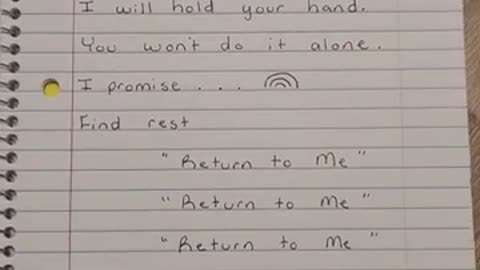 I will hold your hand.
You won't do it alone.
I promise . . .
Find rest
"Return to Me"
"Return to Me"
"Return to Me"